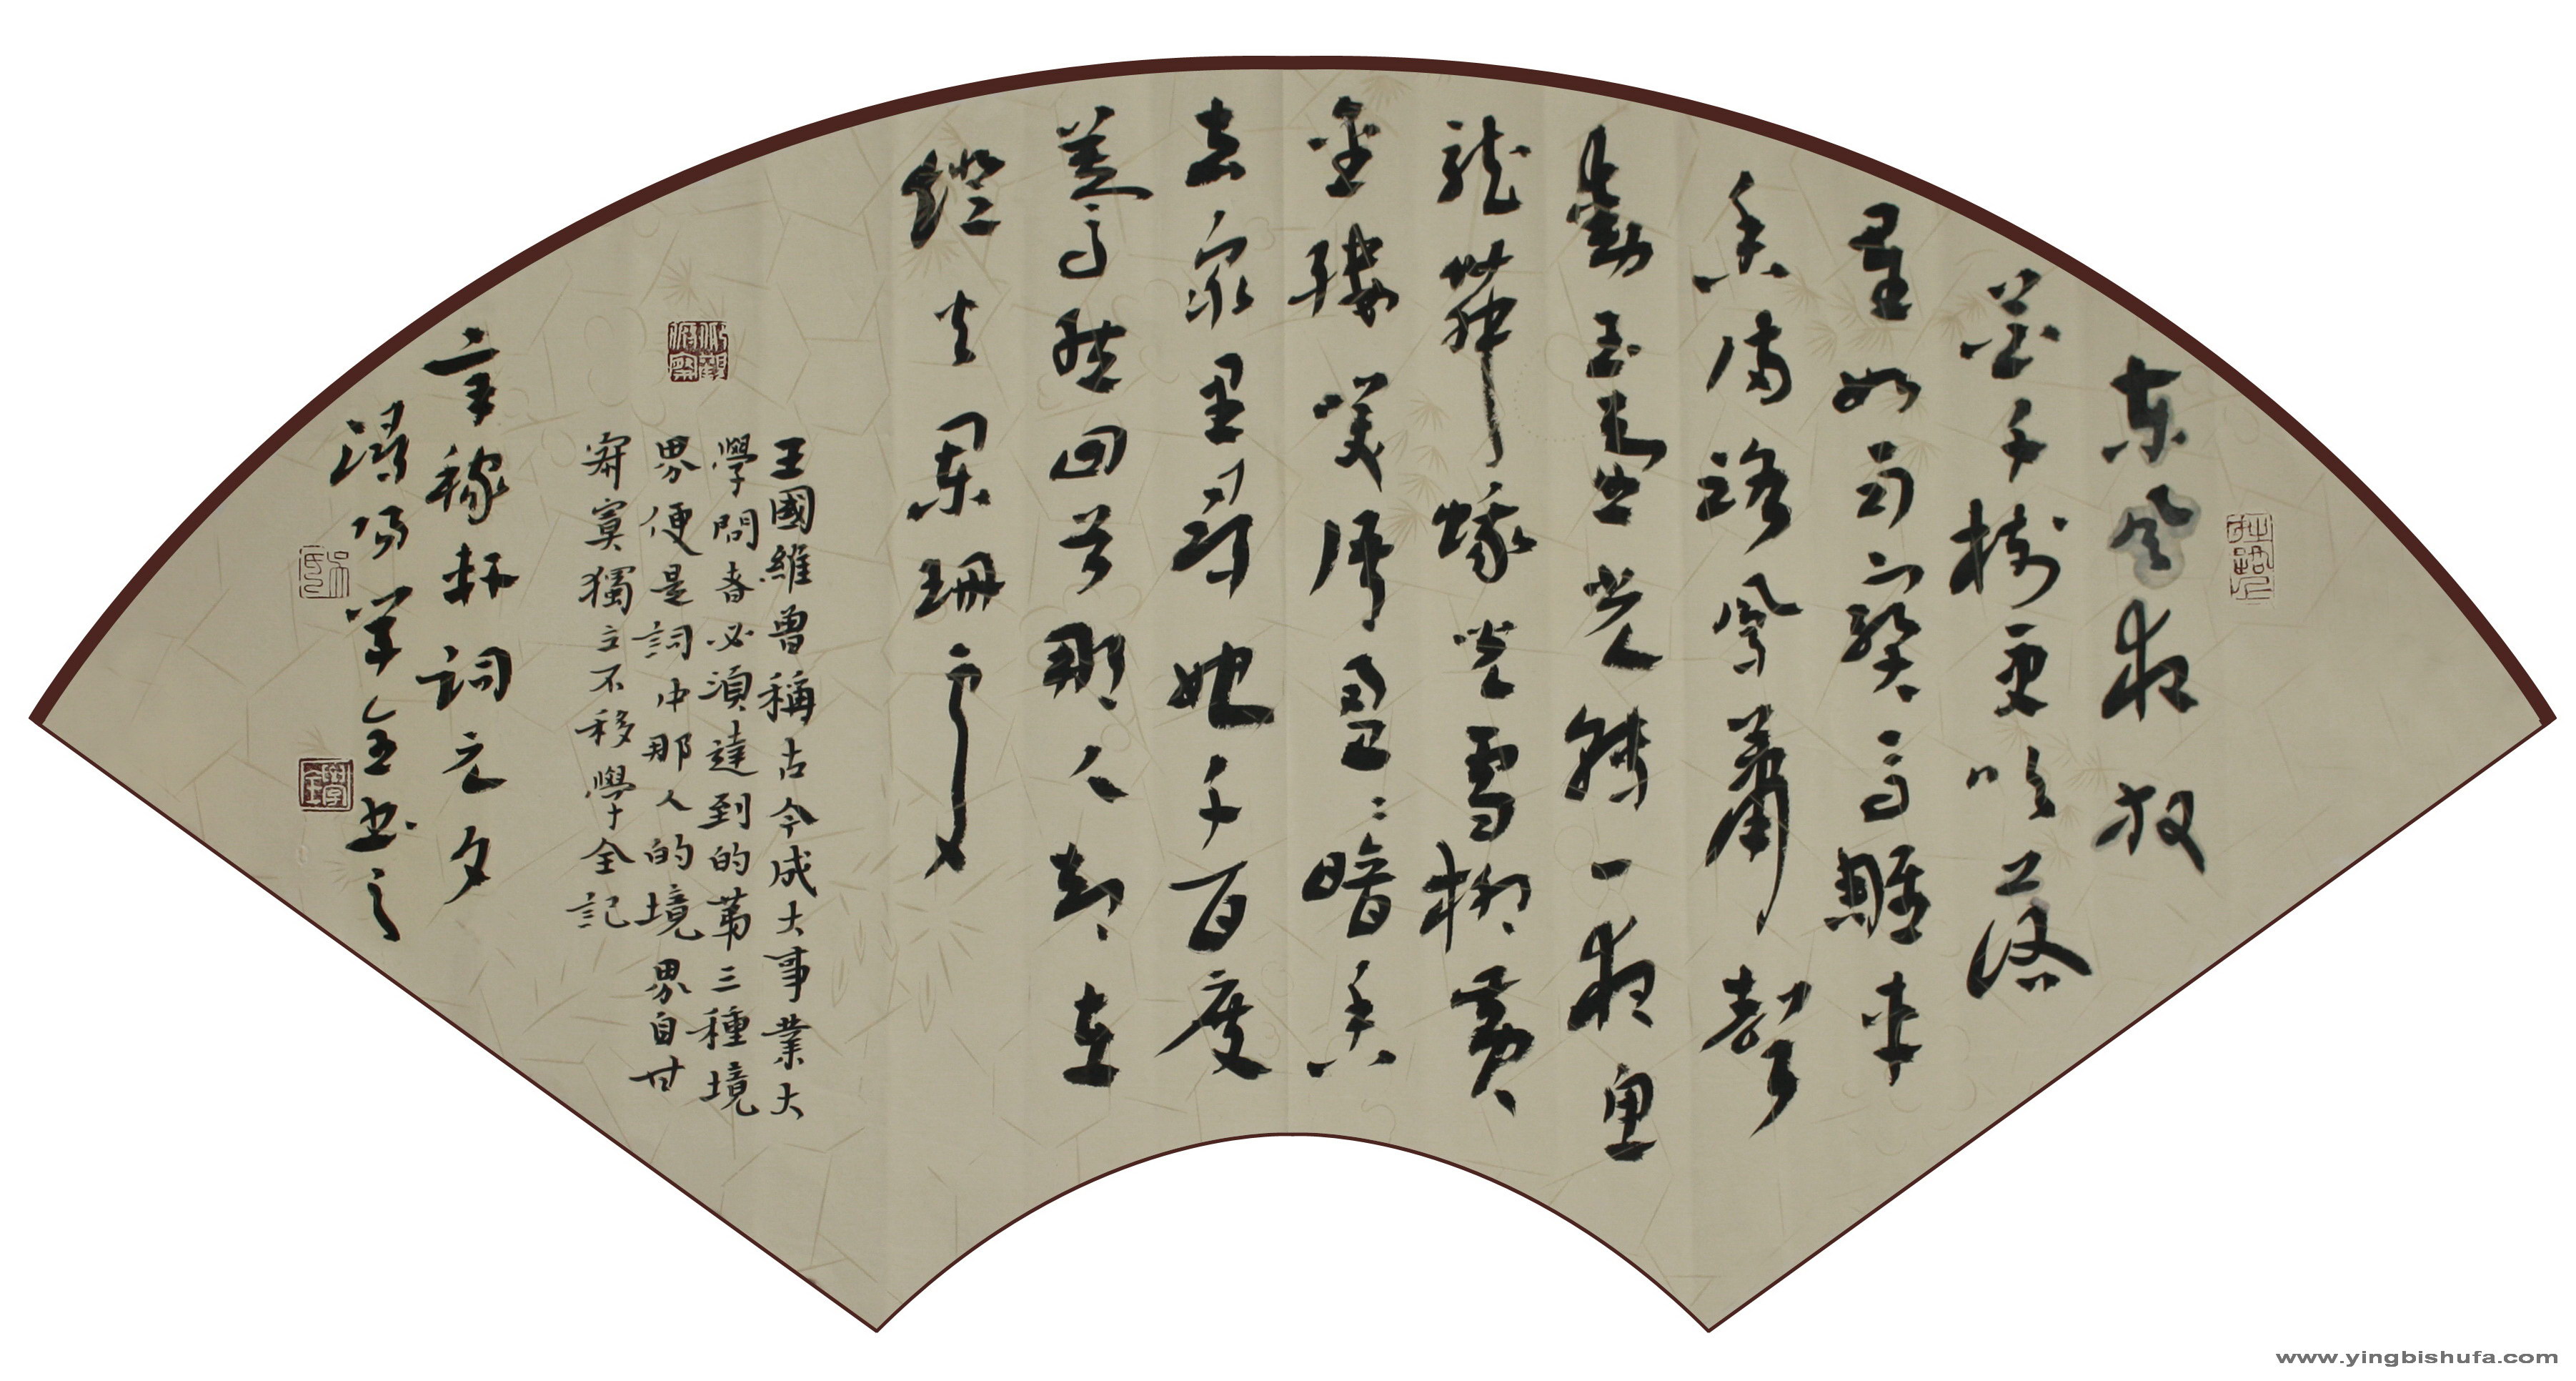 东风夜放
花千樹更吹落
星如雨寶馬雕車
香满路鳳簫聲
動玉壶光转一夜鱼
龙舞蛾兒雪柳黄
金縷笑语盈〻暗香
去衆里尋她千百度
驀然回首那人却在
燈火阑珊處
王國維曾稱古今成大事業大
學問者必須達到的第三種境
界便是詞中那人的境界自甘
寂寞獨立不移學全記
辛稼軒詞元夕
潯阳学全书之
www.yingbishufa.com